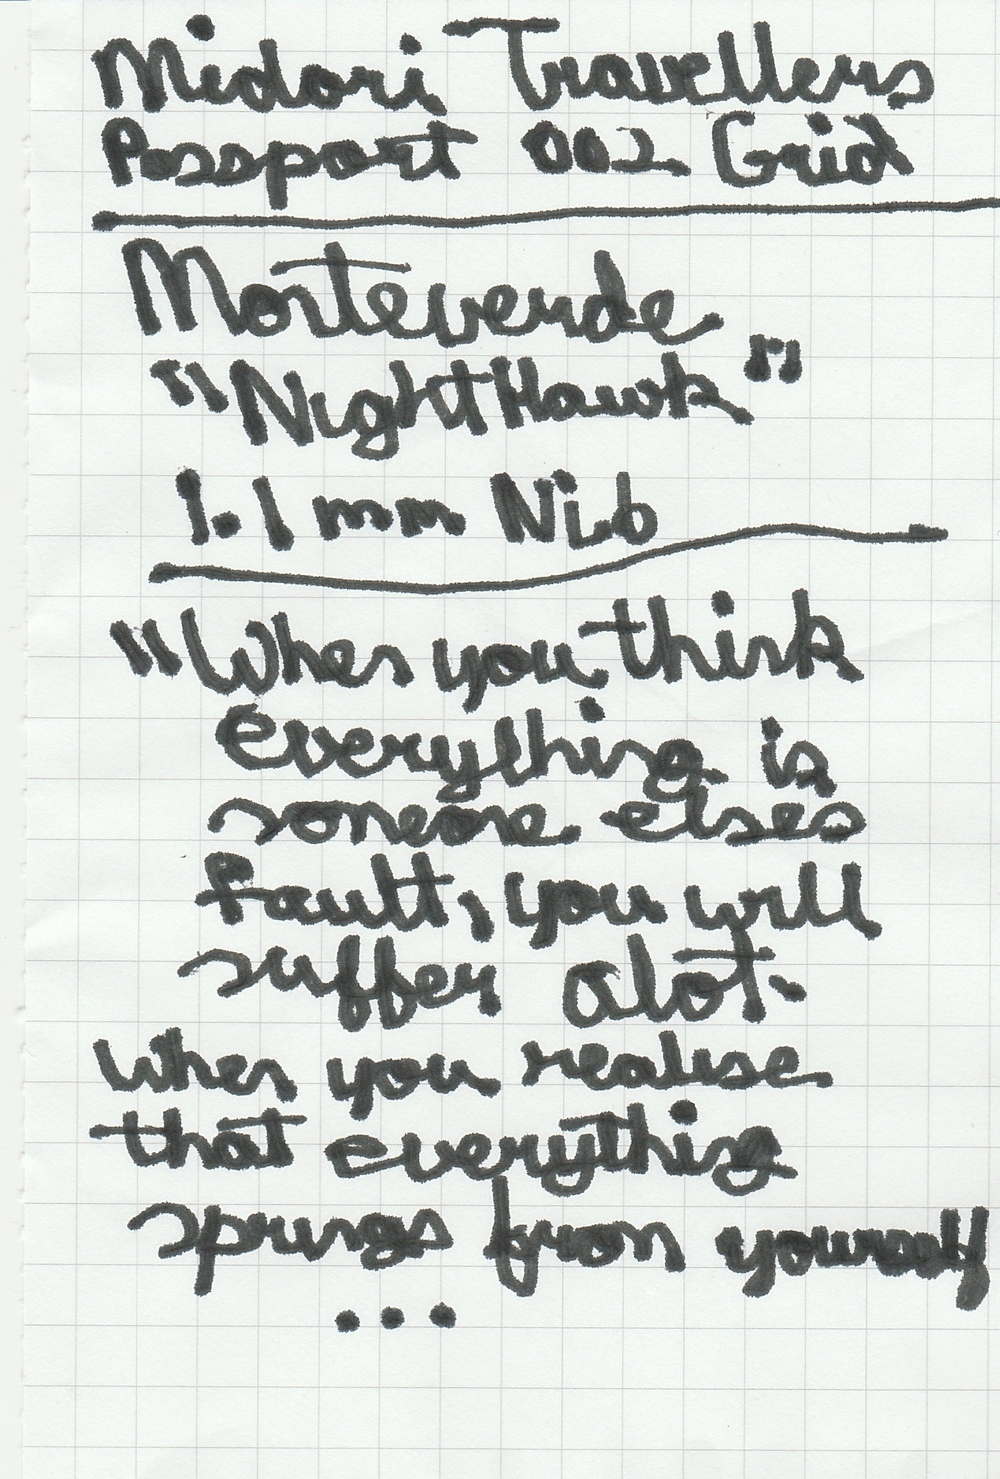 Midori Travellers
Passport 002 Grid
Monteverde
"NightHawk"
1.1 mm Nib
"When you think
everything is
someone elses
fault, you will
suffer alot.
When you realise
that everything
springs from yourself
...